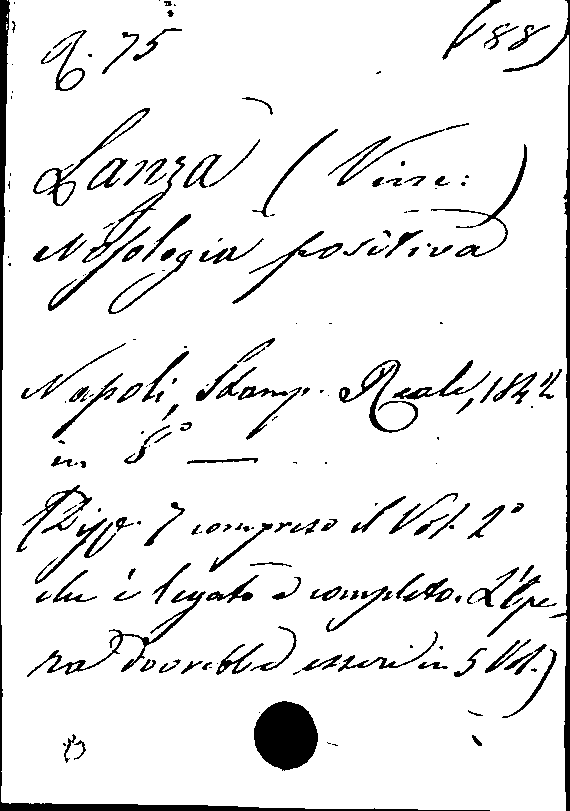 Q. 75 (88)
Lanza (Vinc:)
Nosologia positiva
Napoli, Stamp. Reale, 1842
in 8º —
(Disp. 7 compreso il Vol. 2º
che è legato e completo. L'Ope-
ra dovrebbe essere in 5 Vol.)